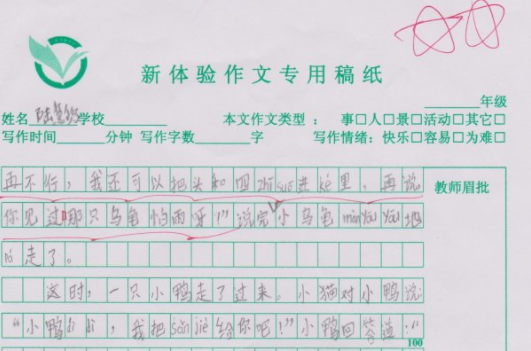 新体验作文专用稿纸
年级
姓名 学校 本文作文类型：事□人□景□活动□其它□
写作时间 分钟 写作字数 字 写作情绪：快乐□容易□为难□
教师眉批
再不行，我还可以把头和四zhī suō进ké里，再说
你见过哪只乌龟怕雨呀！”说完小乌龟màn yōu yōu地
走了。
这时，一只小鸭走了过来。小猫对小鸭说
“小鸭dì dì，我把sǎn jiè给你吧！”小鸭回答道：“
100